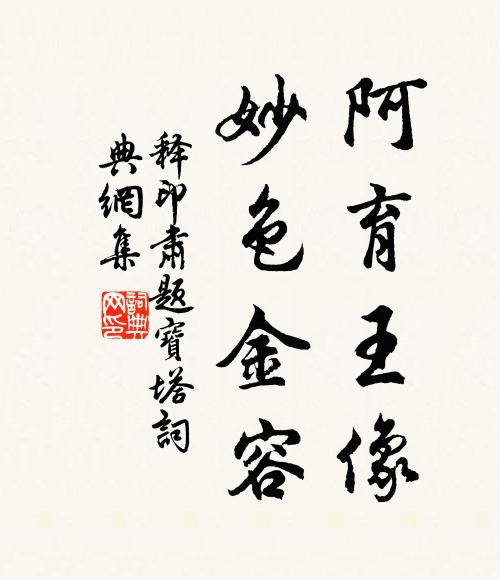 阿育王像
妙色金容
释印肃题寶塔詞
典網集
詞典网印